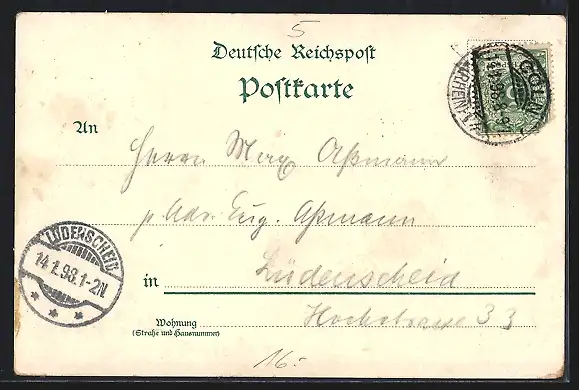 5
Deutsche Reichspost
Postkarte
An
Herrn Max Aßmann
p. Adr. Eug. Aßmann
LÜDENSCHEID
14.1.98.1-2N.
in Lüdenscheid
Wohnung
(Straße und Hausnummer)
Hochstrasse 33
16.